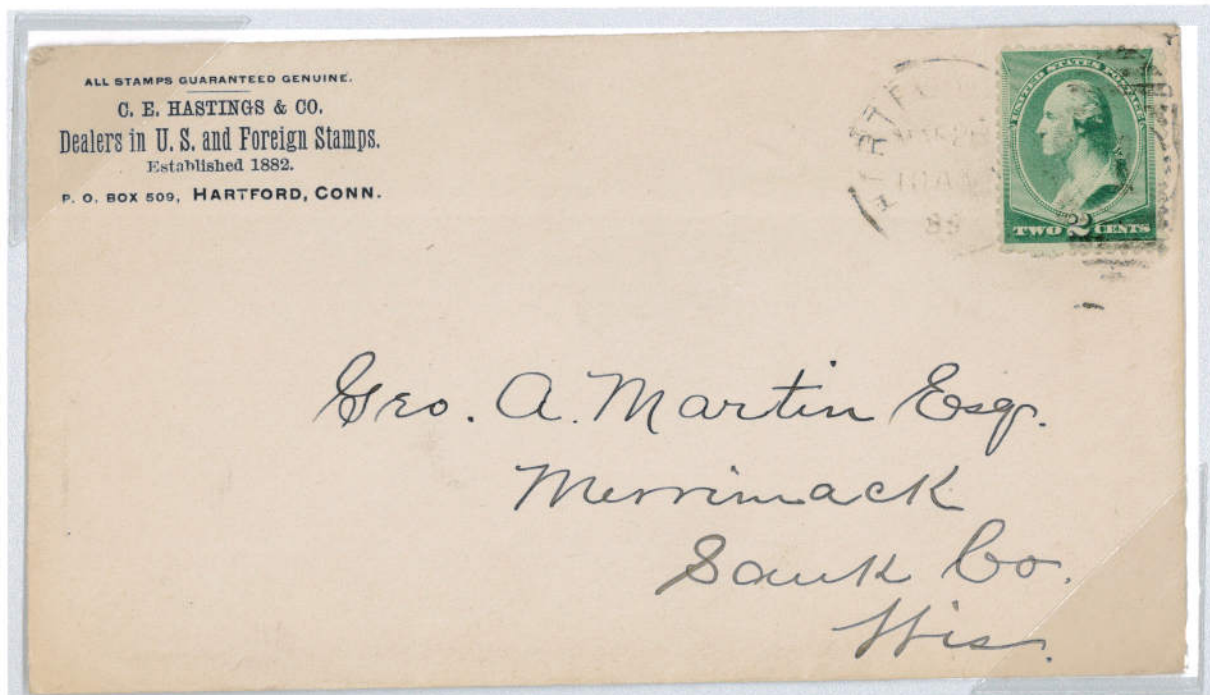 ALL STAMPS GUARANTEED GENUINE.
C. E. HASTINGS & CO.
Dealers in U. S. and Foreign Stamps.
Established 1882.
P. O. BOX 509, HARTFORD, CONN.
UNITED STATES POSTAGE
TWO 2 CENTS
Geo. A. Martin Esq.
Merrimack
Sauk Co.
Wis.